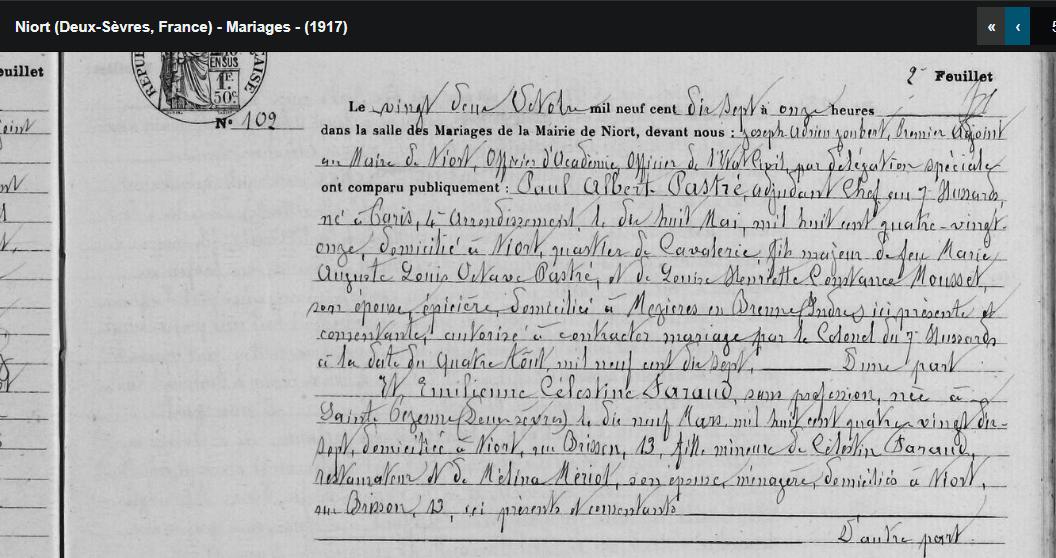 Niort (Deux-Sèvres, France) - Mariages - (1917)
« ‹ 5
euillet
RÉPU AISE
ENSUS
1F
50c
2e Feuillet
Le vingt deux Octobre mil neuf cent dix sept à onze heures
N° 109
dans la salle des Mariages de la Mairie de Niort, devant nous : Joseph Adrien Joubert, Premier Adjoint
au Maire de Niort, Officier d'Académie, Officier de l'Etat Civil, par délégation spéciale
ont comparu publiquement : Paul Albert Pastré, adjudant Chef au 7e Hussards,
né à Paris, 4e Arrondissement, le dix huit Mai, mil huit cent quatre-vingt-
onze, domicilié à Niort, quartier de Cavalerie, fils majeur de feu Marie,
Auguste Louis Octave Pastré, et de Louise Henriette Constance Mousset,
son épouse, épicière, domiciliée à Mezières en Brenne (Indre) ici présente et
consentante, autorisé à contracter mariage par le Colonel du 7e Hussards
à la date du Quatre Août, mil neuf cent dix sept, D'une part
Et Emilienne Célestine Faraud, sans profession, née à
Sainte Pezenne (Deux-Sèvres) le dix neuf Mars, mil huit cent quatre vingt dix-
sept, domiciliée à Niort, rue Brisson, 13, fille mineure de Célestin Faraud,
restaurateur et de Mélina Mériot, son épouse, ménagère, domiciliés à Niort,
rue Brisson, 13, ici présents et consentants
D'autre part.